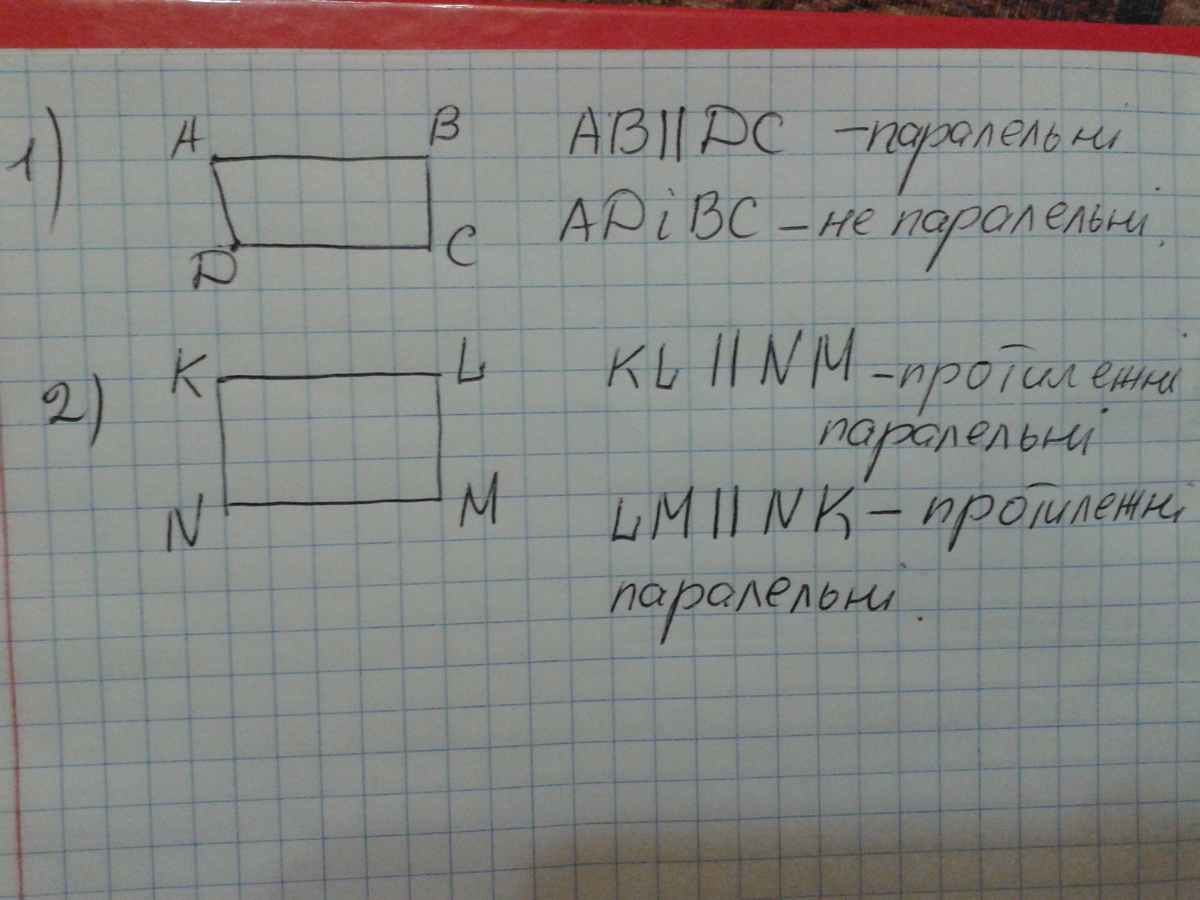 1)
A B
D C
AB||DC – паралельні
AD і BC – не паралельні.
2)
K L
N M
KL || NM – протилежні
паралельні
LM || NK – протилежні
паралельні.